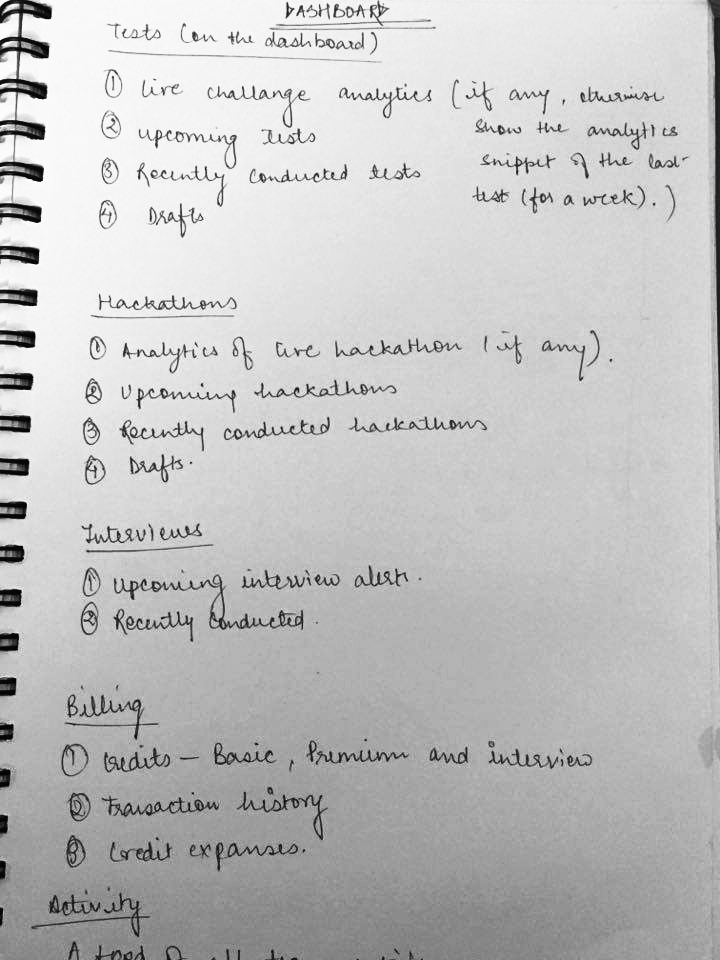 DASHBOARD
Tests (on the dashboard)
① live challange analytics (if any, otherwise
show the analytics
snippet of the last
test (for a week).)
② upcoming tests
③ Recently conducted tests
④ Drafts
Hackathons
① Analytics of live hackathon (if any).
② Upcoming hackathons
③ Recently conducted hackathons
④ Drafts.
Interviews
① Upcoming interview alert.
② Recently conducted.
Billing
① Credits - Basic, Premium and interview
② Transaction history
③ Credit expanses.
Activity
A